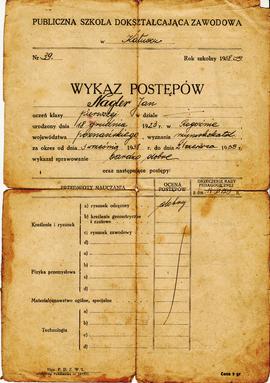 PUBLICZNA SZKOŁA DOKSZTAŁCAJĄCA ZAWODOWA
w Kałuszu
Nr. 39. Rok szkolny 1938/39
WYKAZ POSTĘPÓW
Nagler Jan
uczeń klasy pierwszej w dziale
urodzony dnia 18 grudnia 1923 w
województwa poznańskiego wyznania rzymskokatol.
za okres od dnia września 1938 do dnia 1939
wykazał sprawowanie bardzo dobre
oraz następujące postępy:
PRZEDMIOTY NAUCZANIA
OCENA POSTĘPÓW
ORZECZENIE RADY PEDAGOGICZNEJ
Kreślenie i rysunek
a) rysunek odręczny dobry
b) kreślenie geometryczne i rzutowe
c) rysunek zawodowy
d)
Fizyka przemysłowa
a.
b.
c.
d.
Materjałoznawstwo ogólne, specjalne
Technologja
a.
b.
c.
d.
Cena 5 gr